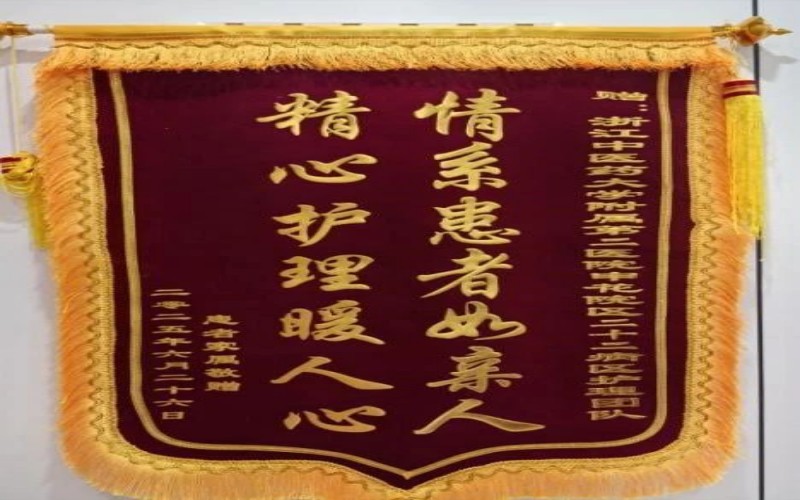 赠：浙江中医药大学附属第二医院申花院区二十二病区护理团队
情系患者如亲人
精心护理暖人心
患者家属敬赠
二零二五年六月二十六日